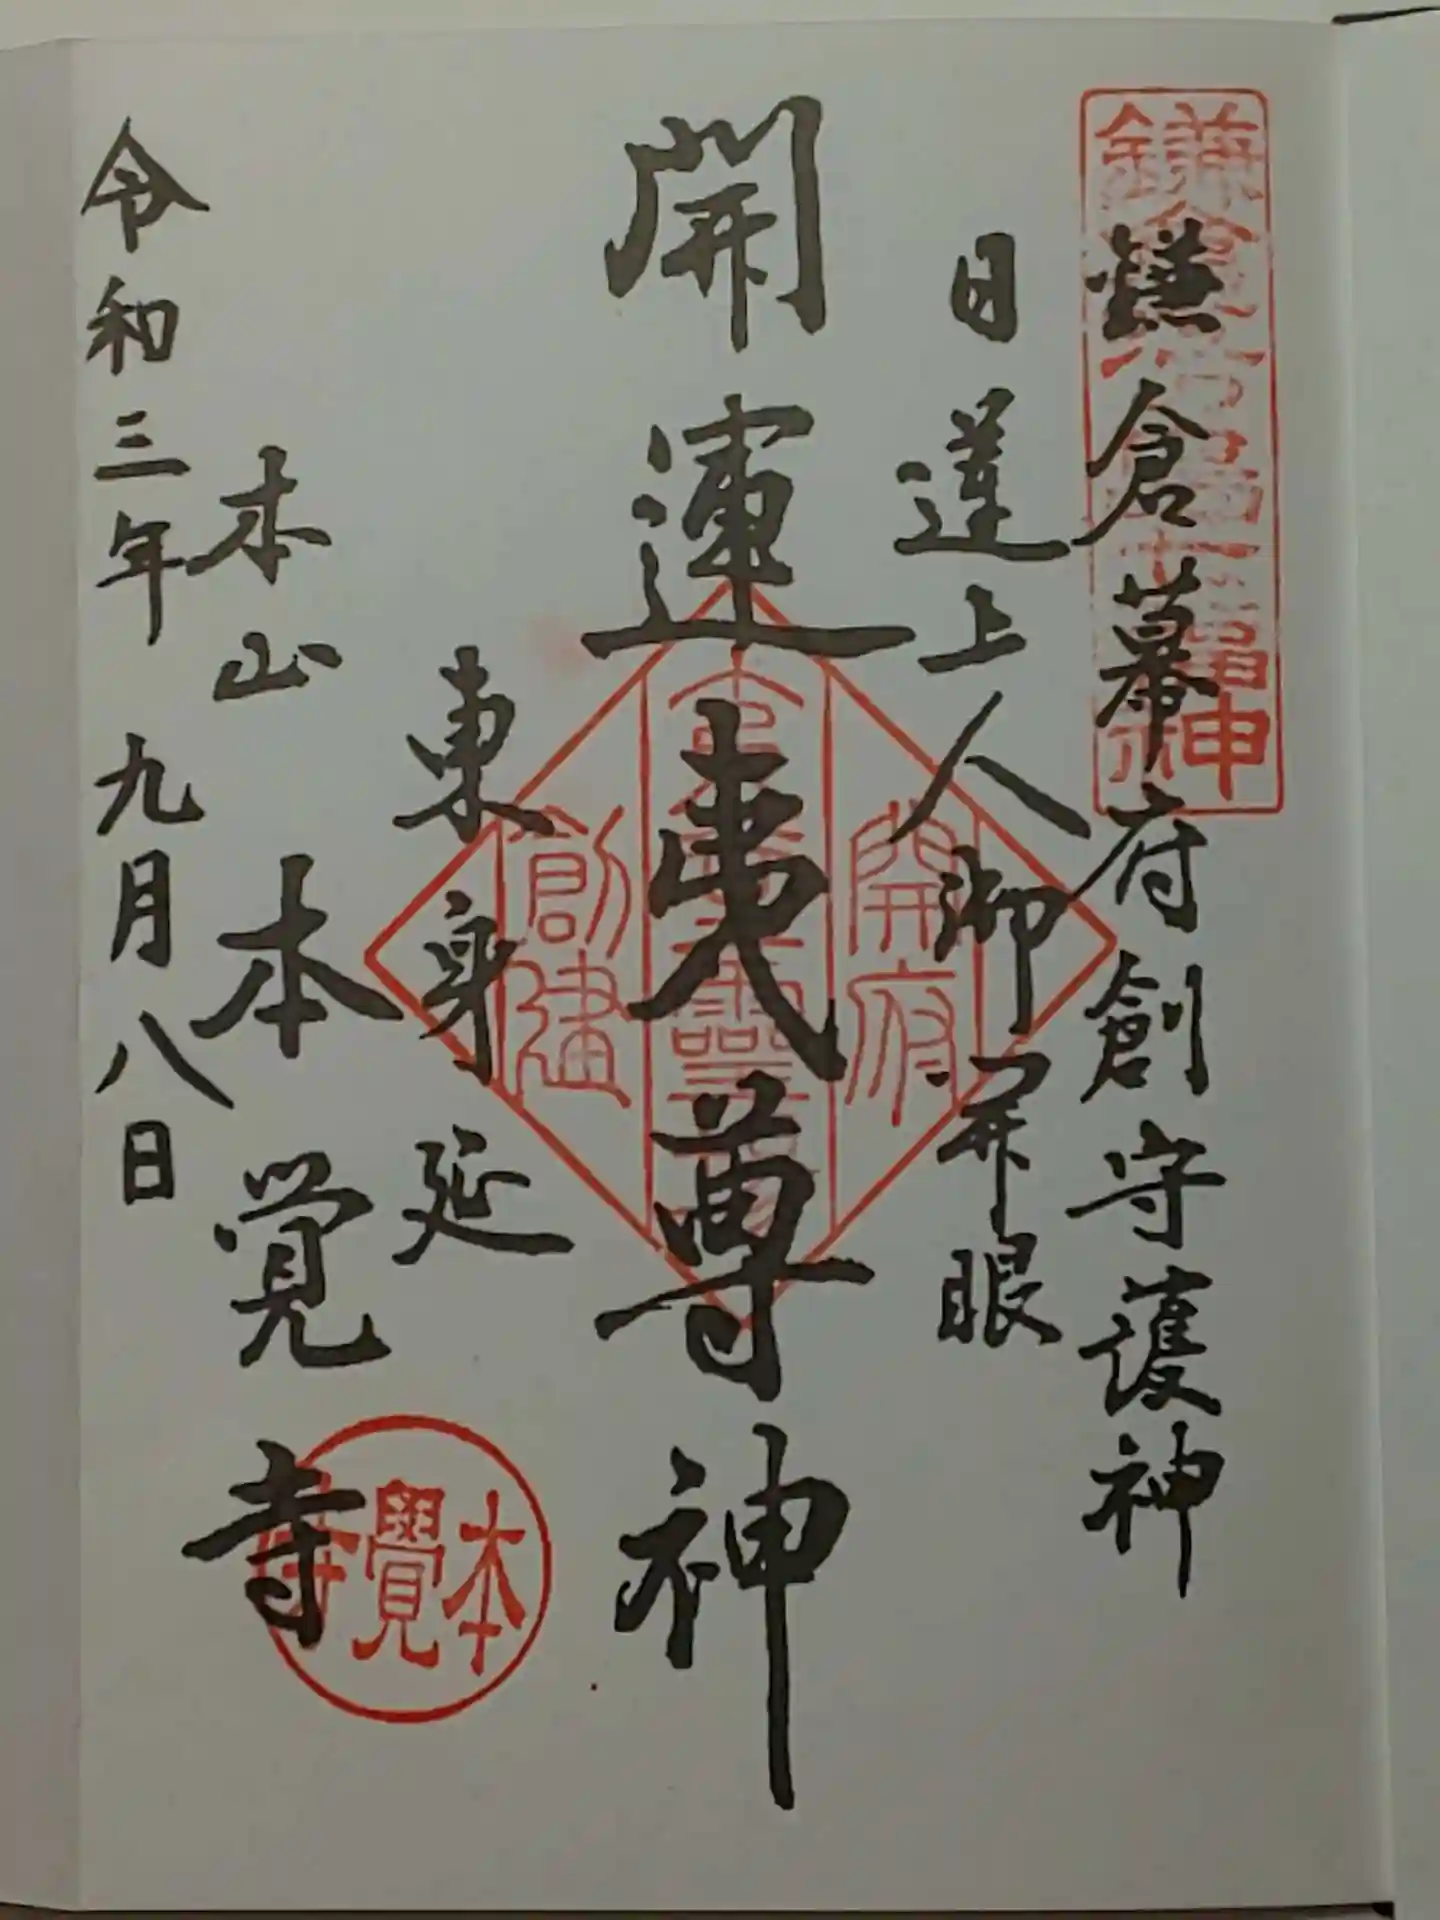 鎌倉幕府創守護神
日蓮上人御開眼
開運夷尊神
東身延
本山 本覚寺
令和三年九月八日
開府
創建
本覺寺